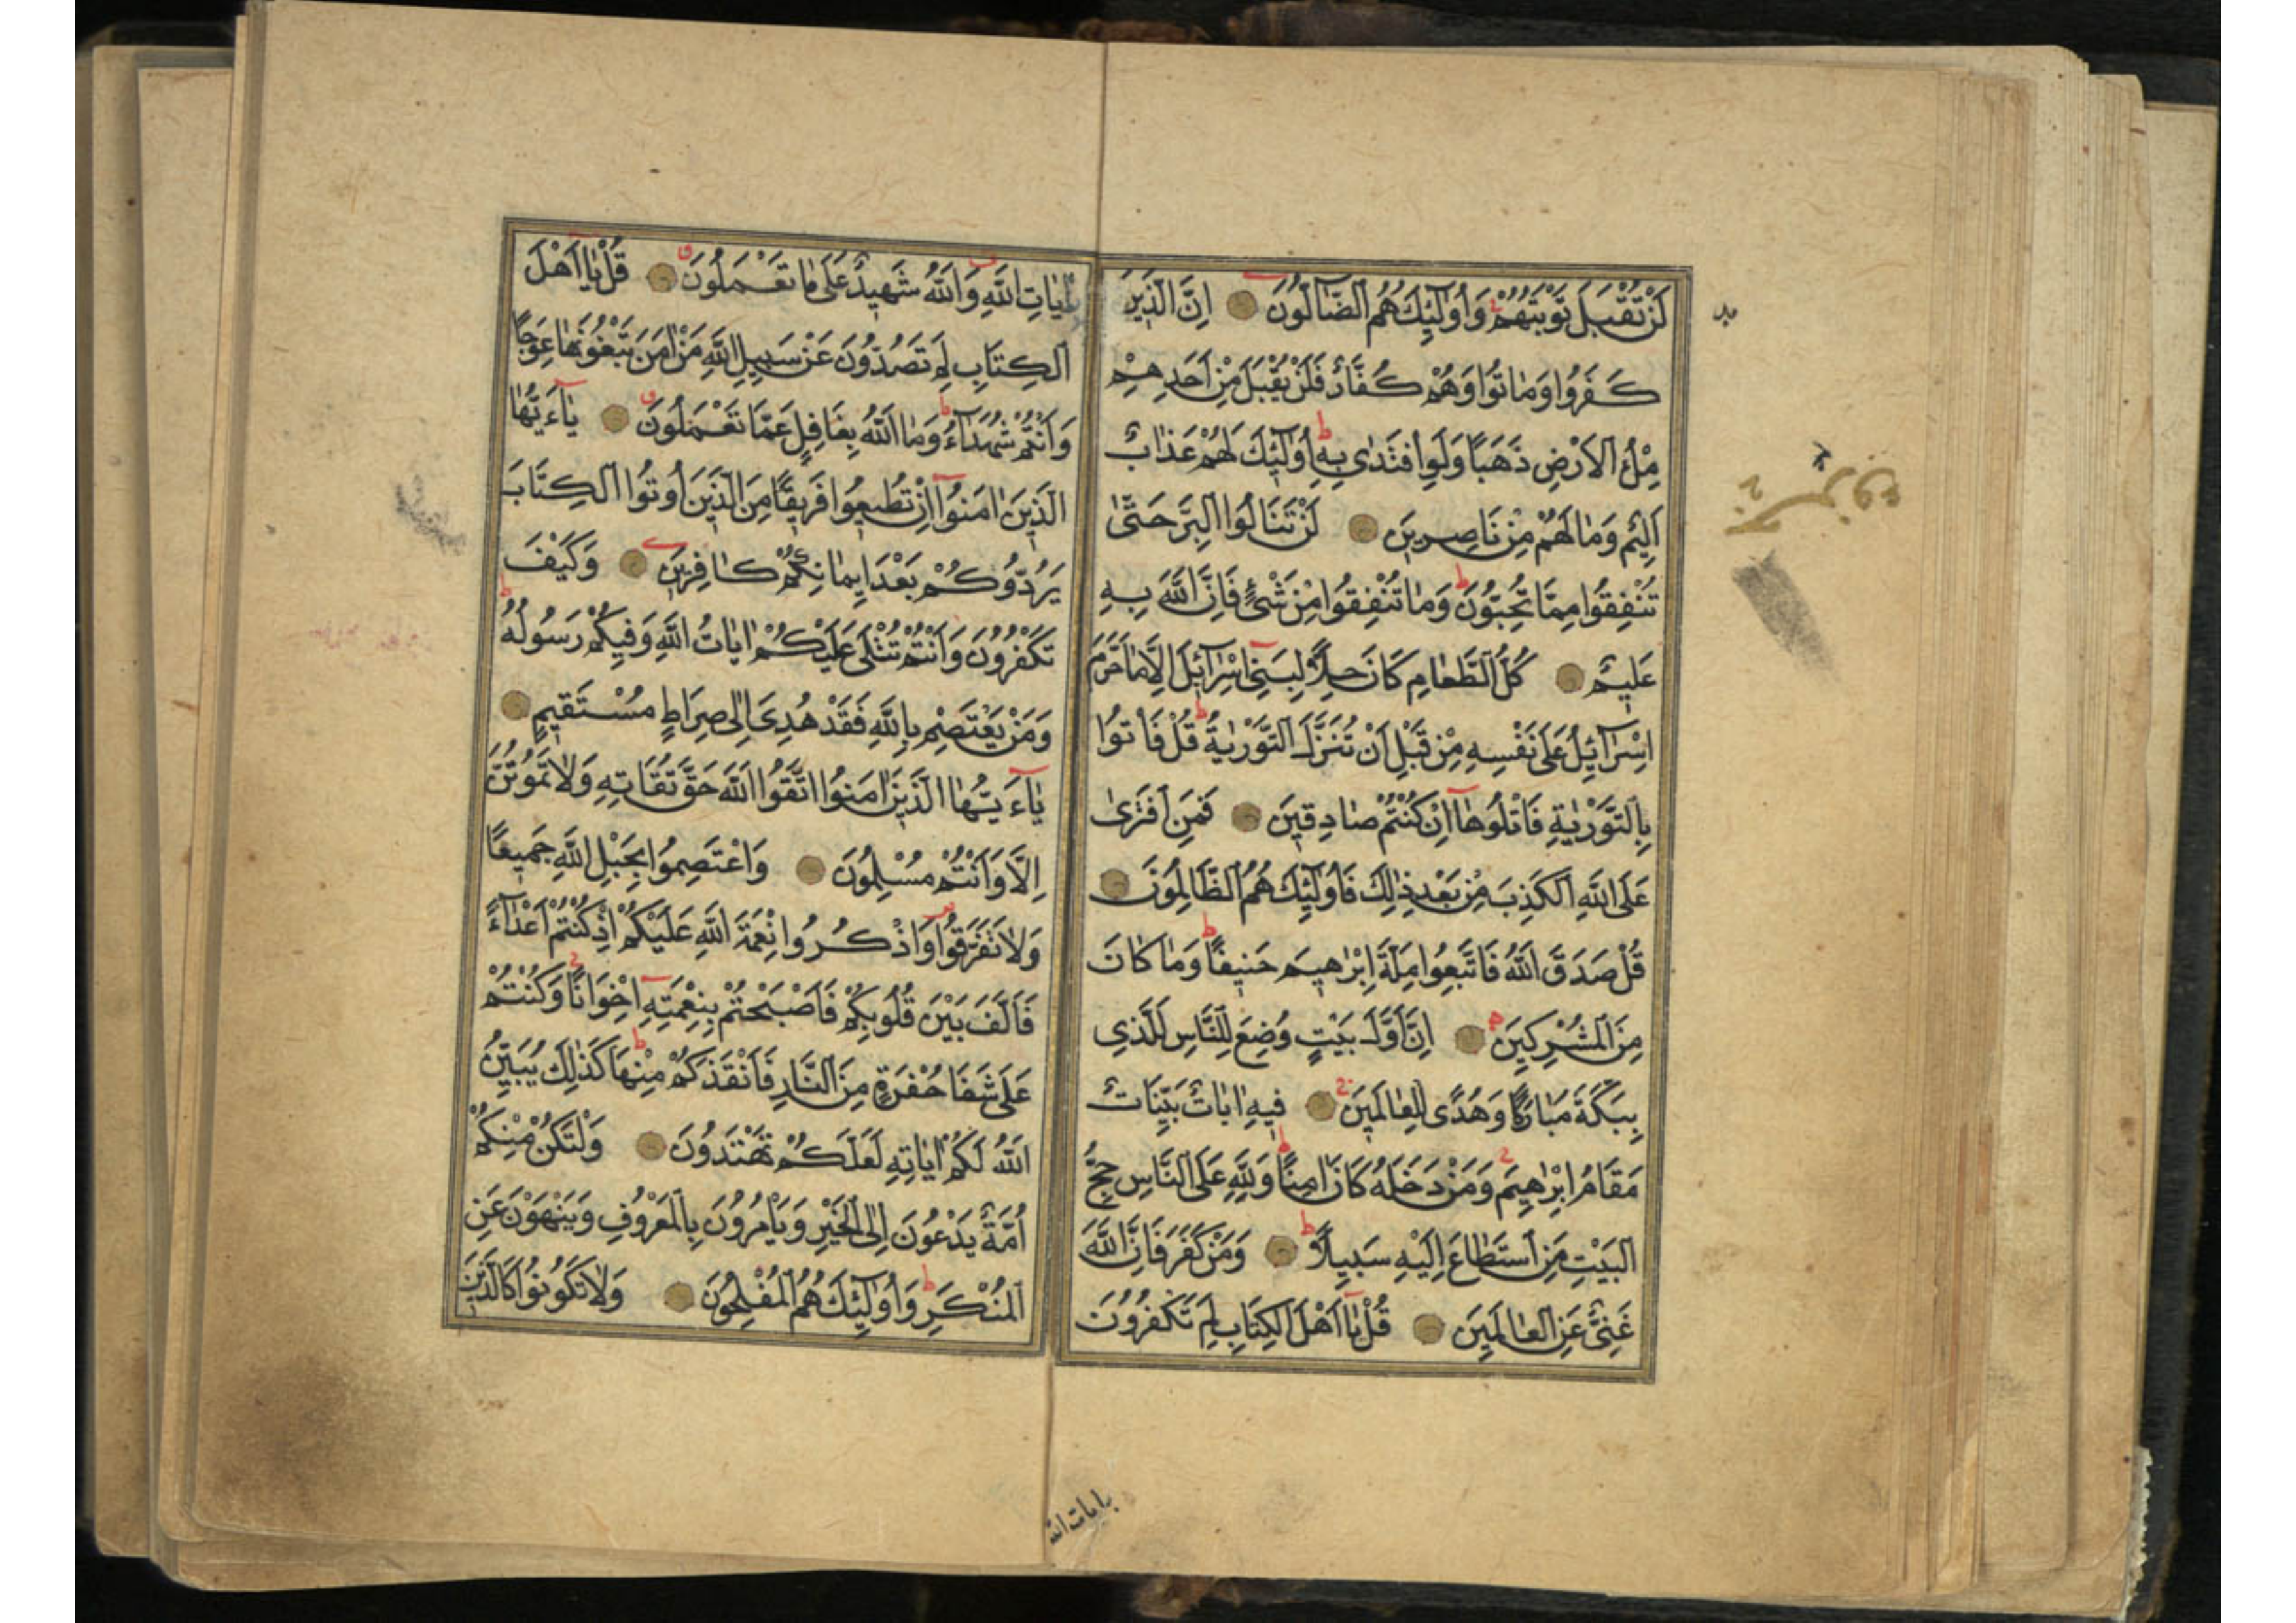 لَنْ تُقْبَلَ تَوْبَتُهُمْ وَاُولٰٓئِكَ هُمُ الضَّٓالُّونَ اِنَّ الَّذِينَ
كَفَرُوا وَمَاتُوا وَهُمْ كُفَّارٌ فَلَنْ يُقْبَلَ مِنْ اَحَدِهِمْ
مِلْءُ الْاَرْضِ ذَهَبًا وَلَوِ افْتَدٰى بِهِ اُولٰٓئِكَ لَهُمْ عَذَابٌ
اَلِيمٌ وَمَا لَهُمْ مِنْ نَاصِرِينَ لَنْ تَنَالُوا الْبِرَّ حَتّٰى
تُنْفِقُوا مِمَّا تُحِبُّونَ وَمَا تُنْفِقُوا مِنْ شَيْءٍ فَاِنَّ اللّٰهَ بِهِ
عَلِيمٌ كُلُّ الطَّعَامِ كَانَ حِلًّا لِبَنِٓي اِسْرَٓائِلَ اِلَّا مَا حَرَّمَ
اِسْرَٓائِلُ عَلٰى نَفْسِهِ مِنْ قَبْلِ اَنْ تُنَزَّلَ التَّوْرٰيةُ قُلْ فَأْتُوا
بِالتَّوْرٰيةِ فَاتْلُوهَٓا اِنْ كُنْتُمْ صَادِقِينَ فَمَنِ افْتَرٰى
عَلَى اللّٰهِ الْكَذِبَ مِنْ بَعْدِ ذٰلِكَ فَاُولٰٓئِكَ هُمُ الظَّالِمُونَ
قُلْ صَدَقَ اللّٰهُ فَاتَّبِعُوا مِلَّةَ اِبْرٰهِيمَ حَنِيفًا وَمَا كَانَ
مِنَ الْمُشْرِكِينَ اِنَّ اَوَّلَ بَيْتٍ وُضِعَ لِلنَّاسِ لَلَّذِي
بِبَكَّةَ مُبَارَكًا وَهُدًى لِلْعَالَمِينَ فِيهِ اٰيَاتٌ بَيِّنَاتٌ
مَقَامُ اِبْرٰهِيمَ وَمَنْ دَخَلَهُ كَانَ اٰمِنًا وَلِلّٰهِ عَلَى النَّاسِ حِجُّ
الْبَيْتِ مَنِ اسْتَطَاعَ اِلَيْهِ سَبِيلًا وَمَنْ كَفَرَ فَاِنَّ اللّٰهَ
غَنِيٌّ عَنِ الْعَالَمِينَ قُلْ يَٓا اَهْلَ الْكِتَابِ لِمَ تَكْفُرُونَ
بِاٰيَاتِ اللّٰهِ وَاللّٰهُ شَهِيدٌ عَلٰى مَا تَعْمَلُونَ قُلْ يَٓا اَهْلَ
الْكِتَابِ لِمَ تَصُدُّونَ عَنْ سَبِيلِ اللّٰهِ مَنْ اٰمَنَ تَبْغُونَهَا عِوَجًا
وَاَنْتُمْ شُهَدَٓاءُ وَمَا اللّٰهُ بِغَافِلٍ عَمَّا تَعْمَلُونَ يَٓاءَيُّهَا
الَّذِينَ اٰمَنُٓوا اِنْ تُطِيعُوا فَرِيقًا مِنَ الَّذِينَ اُوتُوا الْكِتَابَ
يَرُدُّوكُمْ بَعْدَ اِيمَانِكُمْ كَافِرِينَ وَكَيْفَ
تَكْفُرُونَ وَاَنْتُمْ تُتْلٰى عَلَيْكُمْ اٰيَاتُ اللّٰهِ وَفِيكُمْ رَسُولُهُ
وَمَنْ يَعْتَصِمْ بِاللّٰهِ فَقَدْ هُدِيَ اِلٰى صِرَاطٍ مُسْتَقِيمٍ
يَٓاءَيُّهَا الَّذِينَ اٰمَنُوا اتَّقُوا اللّٰهَ حَقَّ تُقَاتِهِ وَلَا تَمُوتُنَّ
اِلَّا وَاَنْتُمْ مُسْلِمُونَ وَاعْتَصِمُوا بِحَبْلِ اللّٰهِ جَمِيعًا
وَلَا تَفَرَّقُوا وَاذْكُرُوا نِعْمَةَ اللّٰهِ عَلَيْكُمْ اِذْ كُنْتُمْ اَعْدَٓاءً
فَاَلَّفَ بَيْنَ قُلُوبِكُمْ فَاَصْبَحْتُمْ بِنِعْمَتِهِ اِخْوَانًا وَكُنْتُمْ
عَلٰى شَفَا حُفْرَةٍ مِنَ النَّارِ فَاَنْقَذَكُمْ مِنْهَا كَذٰلِكَ يُبَيِّنُ
اللّٰهُ لَكُمْ اٰيَاتِهِ لَعَلَّكُمْ تَهْتَدُونَ وَلْتَكُنْ مِنْكُمْ
اُمَّةٌ يَدْعُونَ اِلَى الْخَيْرِ وَيَأْمُرُونَ بِالْمَعْرُوفِ وَيَنْهَوْنَ عَنِ
الْمُنْكَرِ وَاُولٰٓئِكَ هُمُ الْمُفْلِحُونَ وَلَا تَكُونُوا كَالَّذِينَ
بايات الله